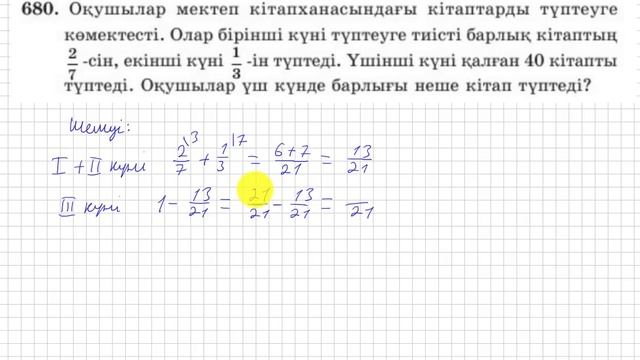 680. Оқушылар мектеп кітапханасындағы кітаптарды түптеуге
көмектесті. Олар бірінші күні түптеуге тиісті барлық кітаптың
2/7 -сін, екінші күні 1/3 -ін түптеді. Үшінші күні қалған 40 кітапты
түптеді. Оқушылар үш күнде барлығы неше кітап түптеді?
Шешуі:
I + II күні 2/7 \3 + 1/3 \7 = 6+7/21 = 13/21
III күні 1 - 13/21 = 21/21 - 13/21 = /21